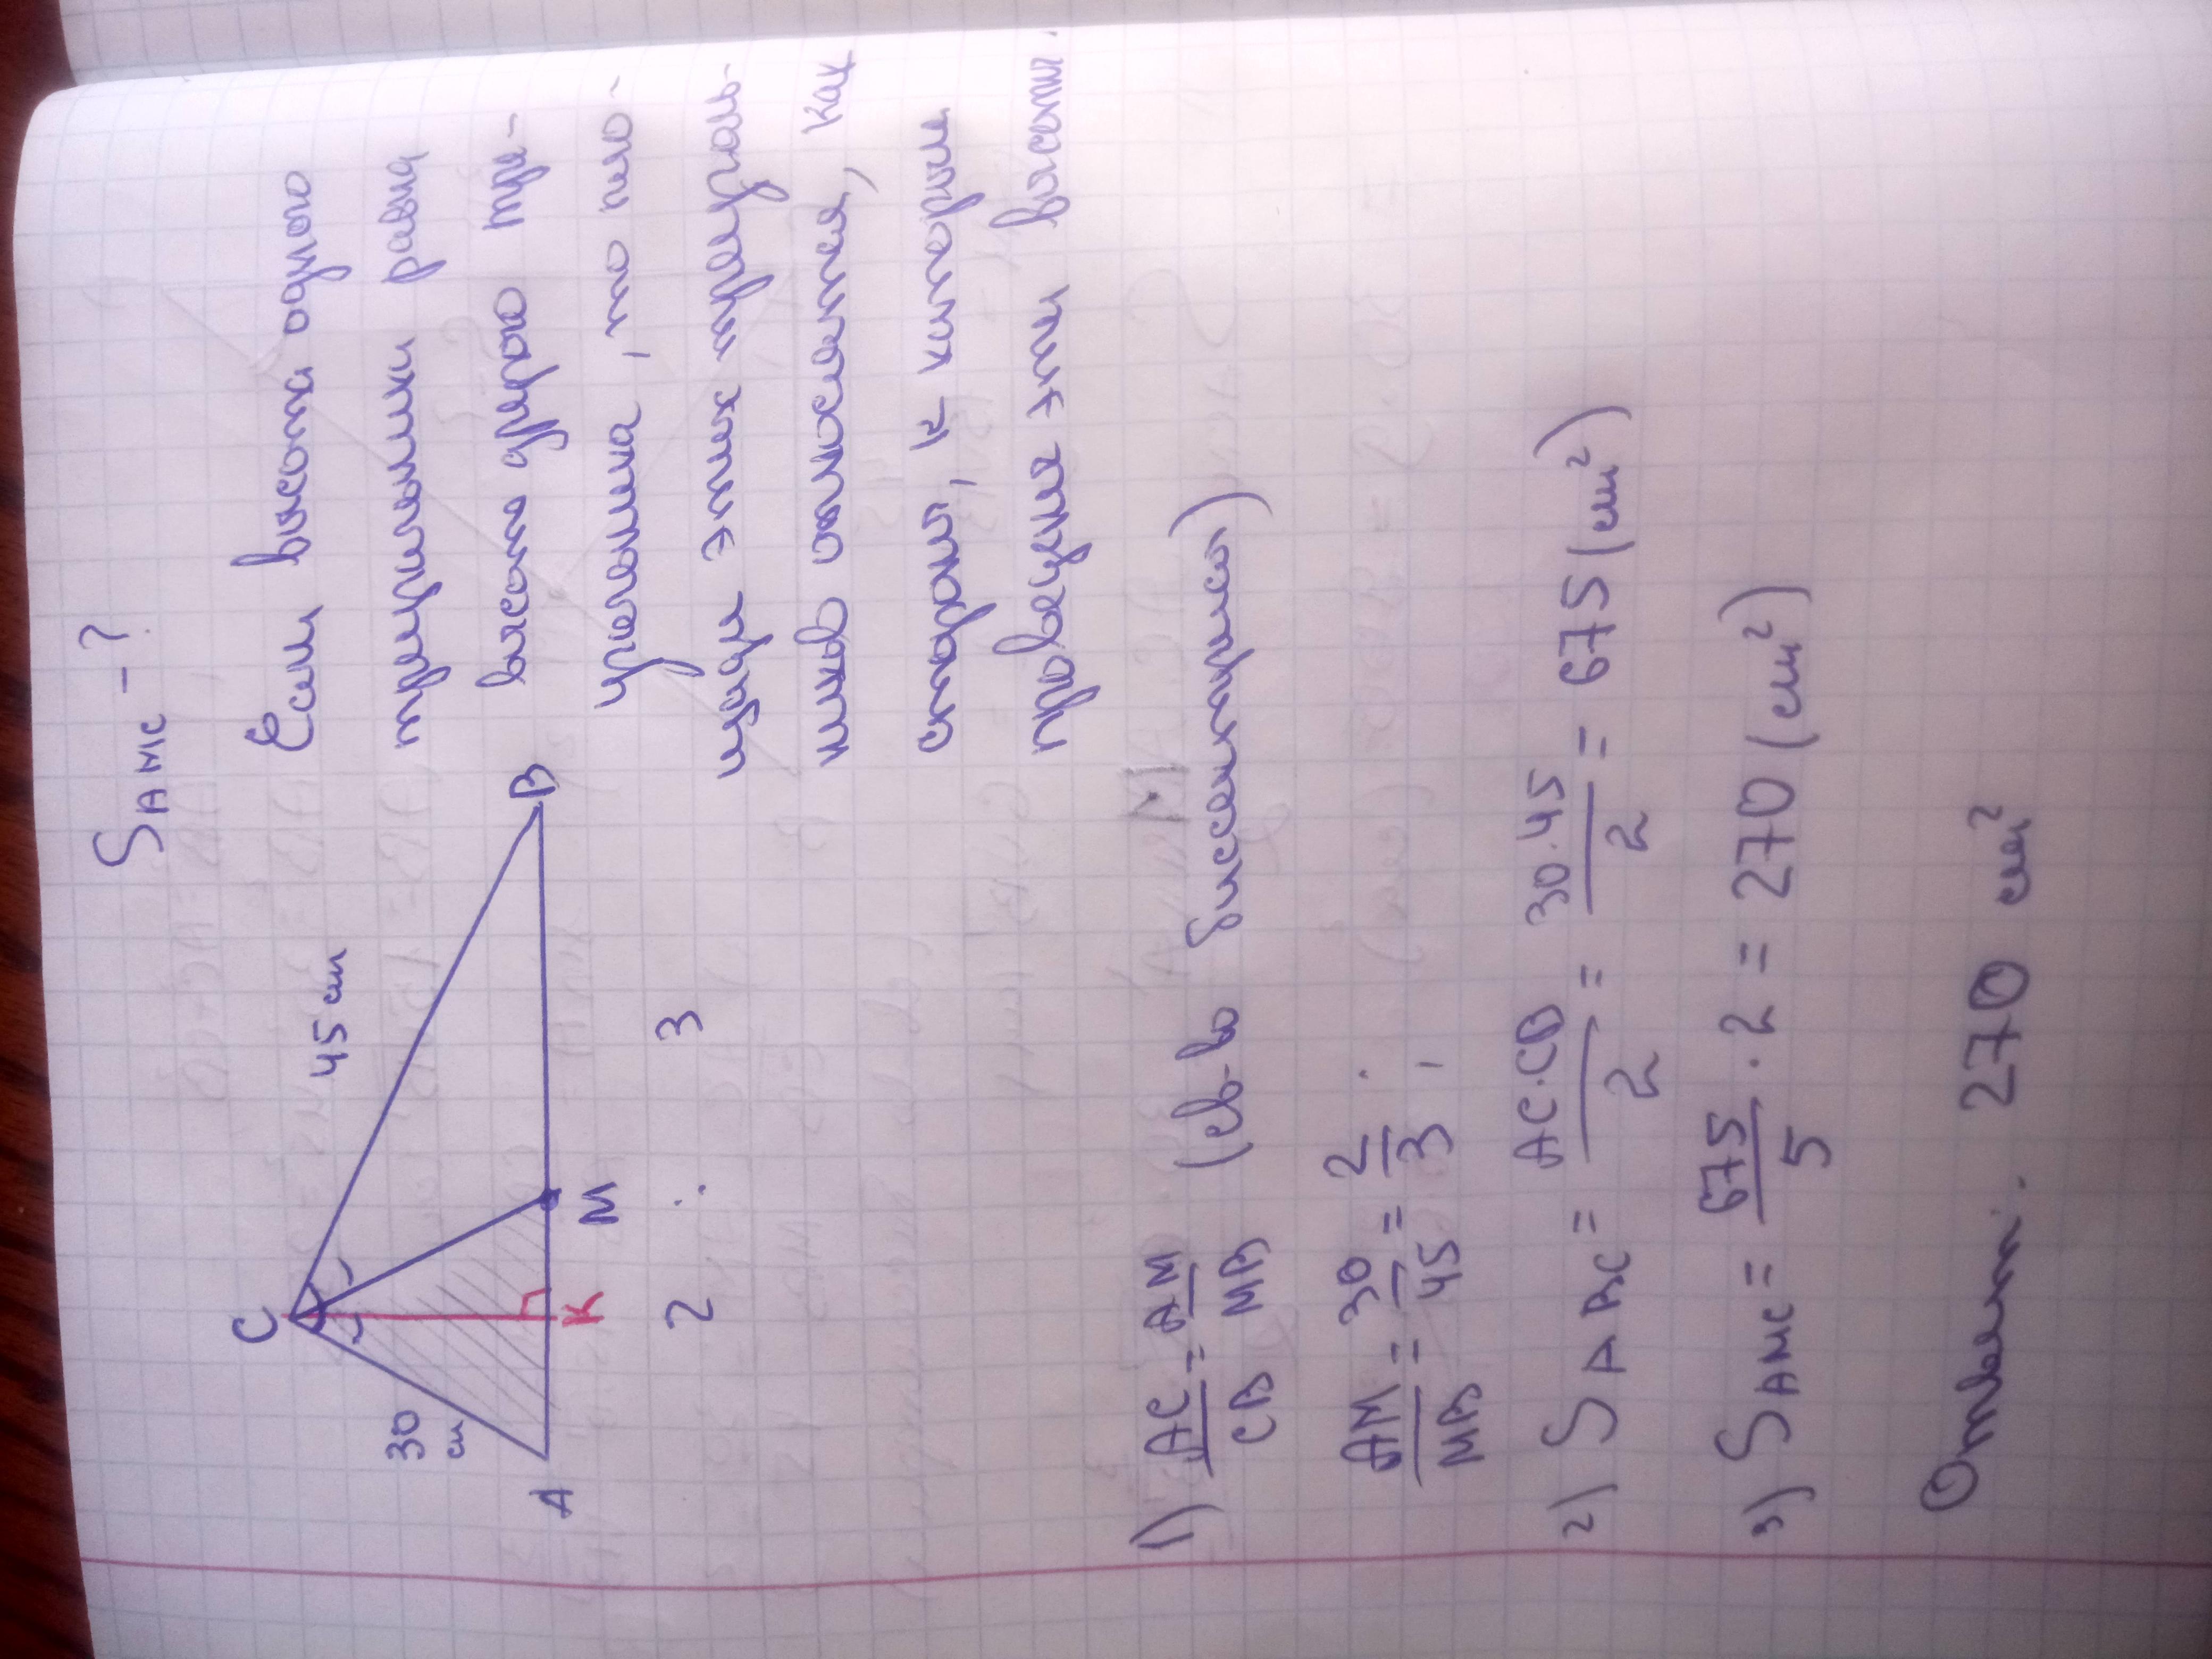 S AMC - ?
C
45 см
30
см
A
K
M
B
2 : 3
Если высота одного
треугольника равна
высоте другого тре-
угольника, то пло-
щади этих треуголь-
ников относятся, как
стороны, к которым
проведены эти высоты.
1) AC/CB = AM/MB (св-во биссектрисы)
AM/MB = 30/45 = 2/3 ;
2) S ABC = AC·CB/2 = 30·45/2 = 675 (см²)
3) S AMC = 675/5 · 2 = 270 (см²)
Ответ. 270 см²